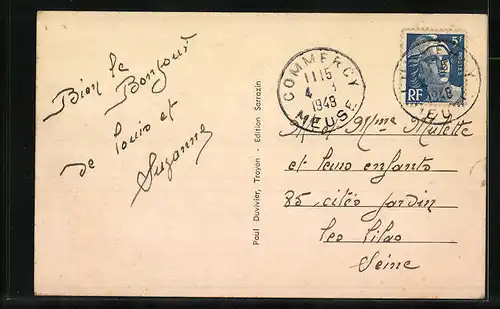 Bien le Bonjour
de Louis et
Suzanne
Paul Duvivier, Troyon - Edition Sarrazin
COMMERCY
11 15
4
1948
MEUSE
5F
POSTES
RF
1948
M et Mme Mulette
et leurs enfants
85 cités Jardin
les Lilas
Seine